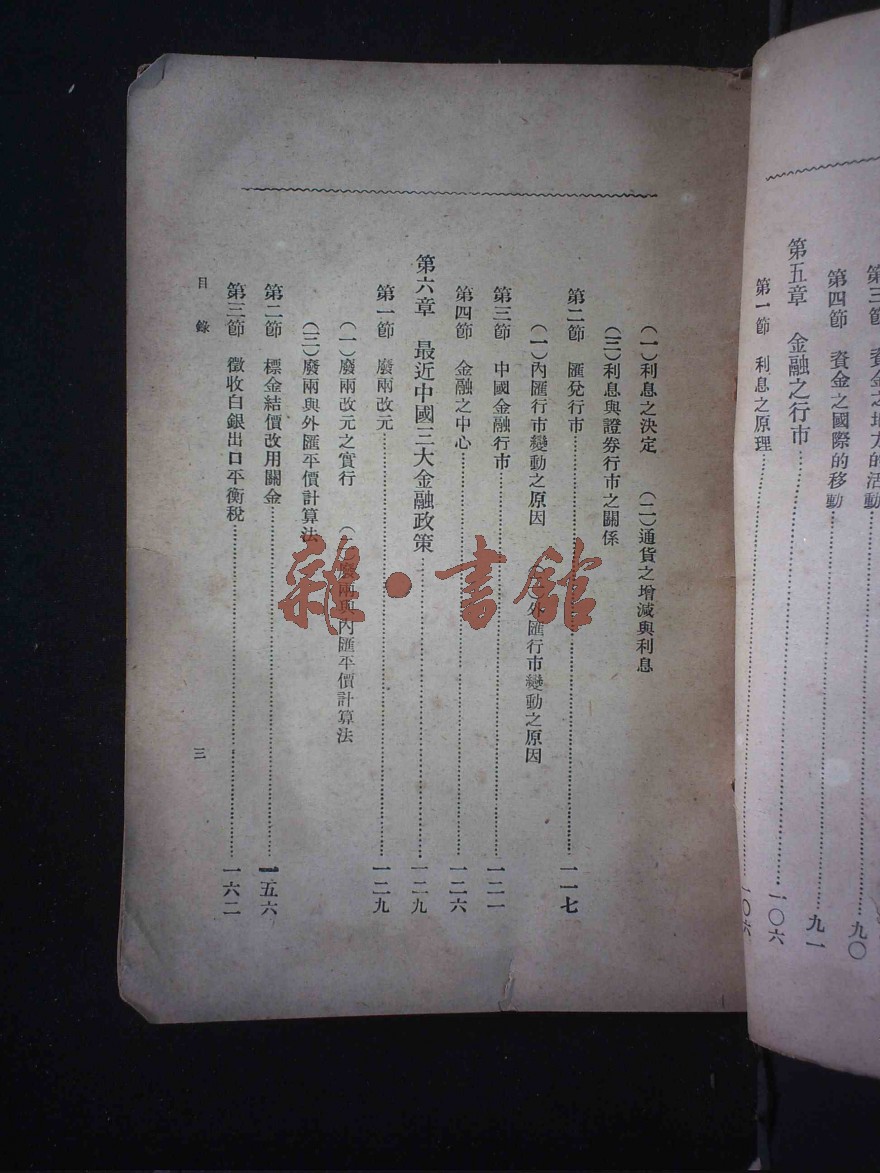 第三節　資金之地方的活動……九〇
第四節　資金之國際的移動……九一
第五章　金融之行市……一〇六
第一節　利息之原理……一〇六
(一)利息之決定　(二)通貨之增減與利息
(三)利息與證券行市之關係
第二節　匯兌行市……一一七
第三節　中國金融行市……一二一
(一)內匯行市變動之原因　(二)外匯行市變動之原因
第四節　金融之中心……一二六
第六章　最近中國三大金融政策……一二九
第一節　廢兩改元……一二九
(一)廢兩改元之實行　(二)廢兩與內匯平價計算法
(三)廢兩與外匯平價計算法
第二節　標金結價改用關金……一五六
第三節　徵收白銀出口平衡稅……一六二
目錄
三
雜·書館